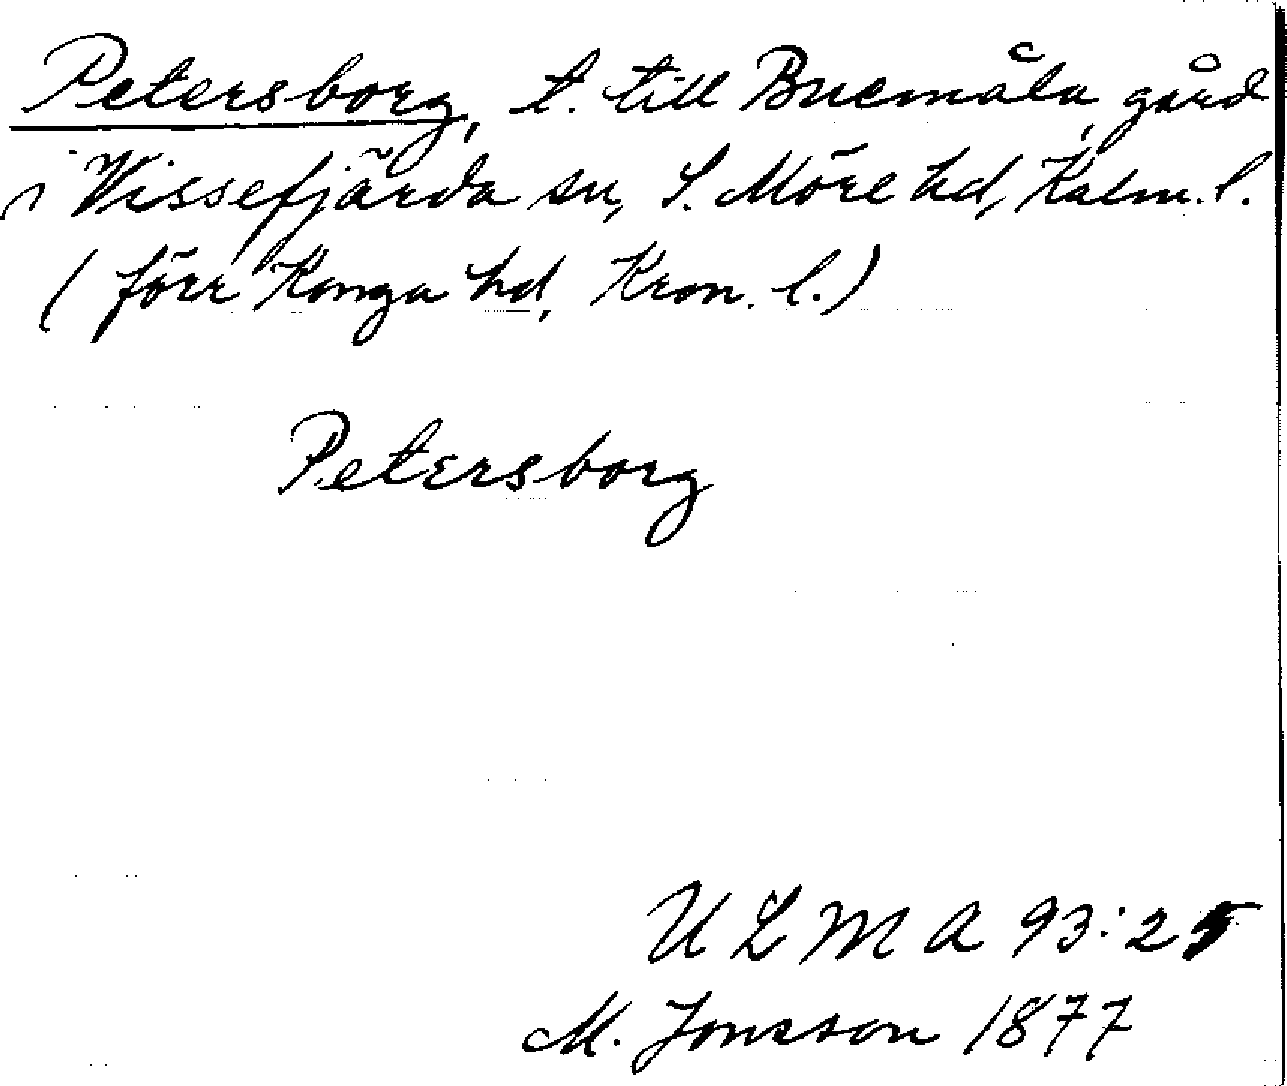 Petersborg, t. till Buemåla, gård
i Vissefjärda sn, S. Möre hd, Kalm. l.
(förr Konga hd, Kron. l.)
Petersborg
ULMA 93:25
M. Jonsson 1877